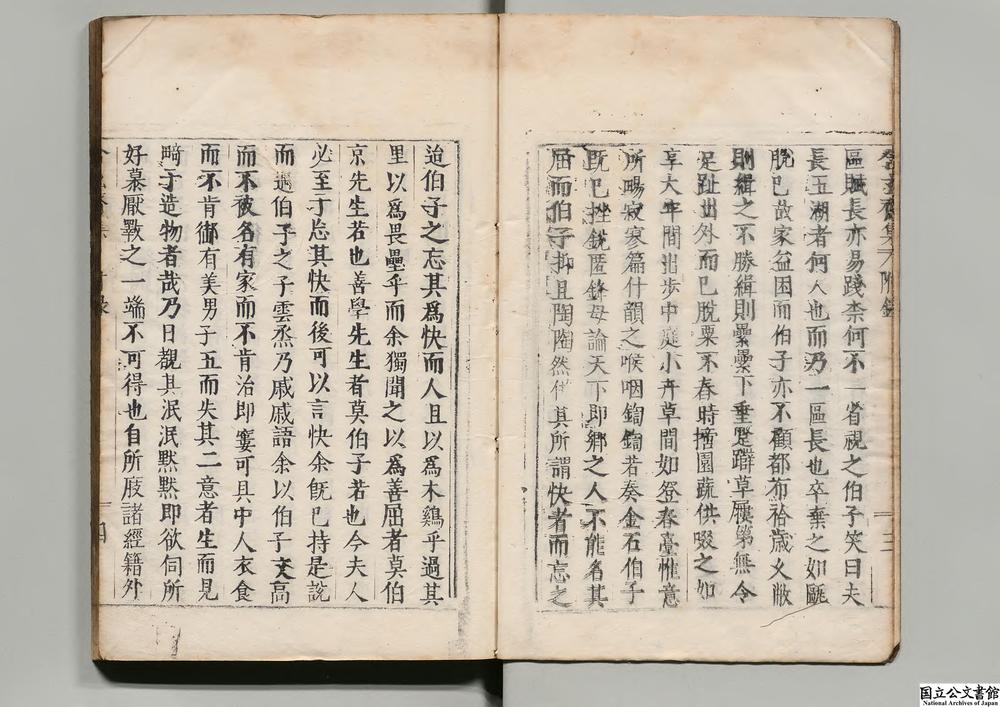 區賦長亦易踐柰何不一省視之伯子笑曰夫
長五湖者何人也而乃一區長也卒棄之如㼐
脫巳故家益困而伯子亦不顧都布袷歲久敝
則緝之不勝緝則纍纍下垂躧躃草屨第無令
足趾出外而巳脫粟不舂時擷園蔬供啜之如
享大牢間出步中庭小卉草間如登春臺惟意
所暘寂寥篇什韻之喉咽鍧鍧若奏金石伯子
既巳挫銳匿鋒毋論天下即鄉之人不能名其
屈而伯子抑且陶陶然
其所謂快者而忘之
迨伯子之忘其爲快而人且以爲木鷄乎過其
里以爲畏壘乎而余獨聞之以爲善屈者莫伯
京先生若也善學先生者莫伯子若也今夫人
必至于忘其快而後可以言快余旣巳持是說
而遇伯子之子雲烝乃戚戚語余以伯子文高
而不被名有家而不肯治即窶可具中人衣食
而不肯御有美男子五而失其二意者生而見
畸于造物者哉乃日覩其泯泯默默即欲伺所
好慕厭斁之一端不可得也自所庋諸經籍外
四
国立公文書館
National Archives of Japan